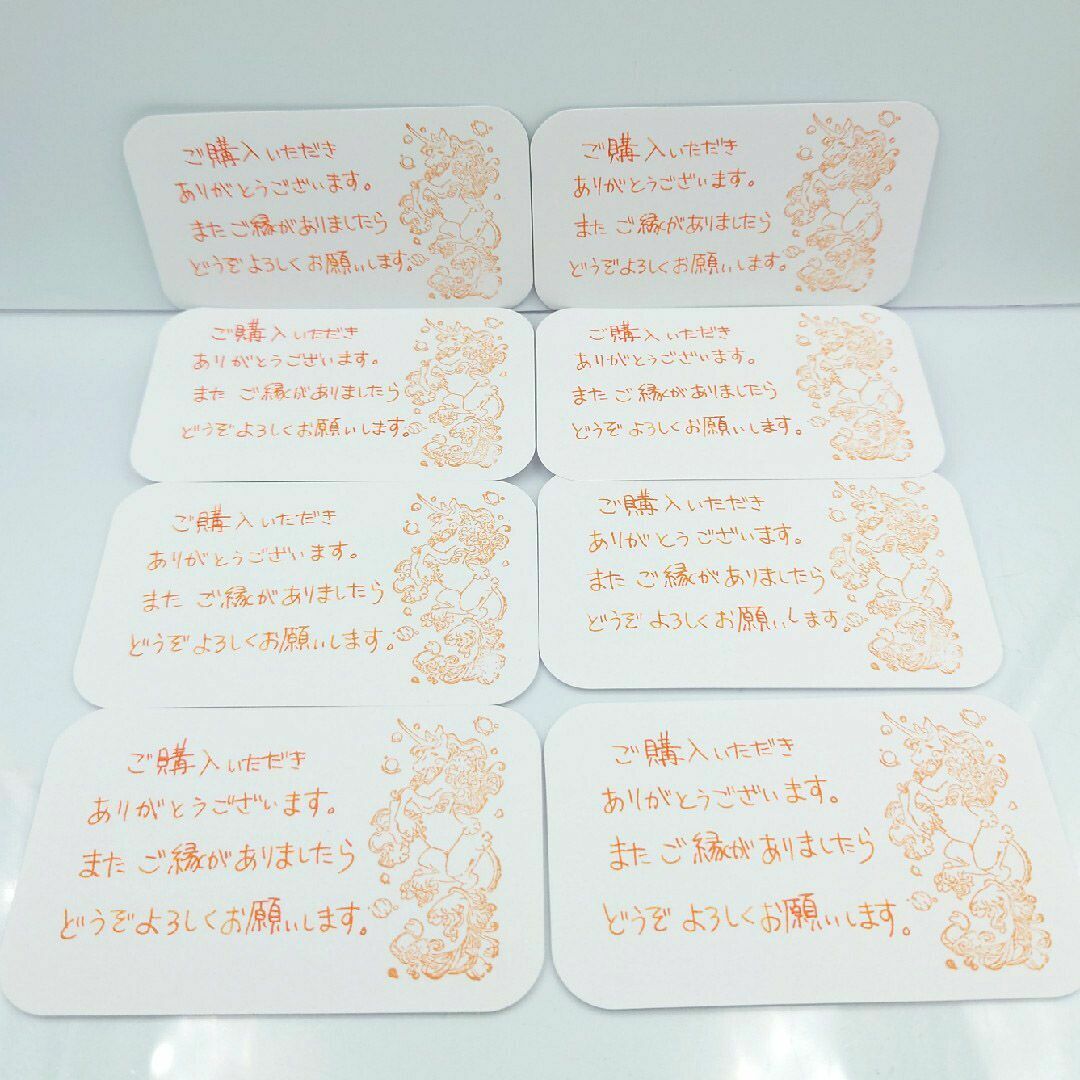 ご購入いただき
ありがとうございます。
また ご縁がありましたら
どうぞ よろしくお願いします。
ご購入いただき
ありがとうございます。
また ご縁がありましたら
どうぞ よろしくお願いします。
ご購入いただき
ありがとうございます。
また ご縁がありましたら
どうぞ よろしくお願いします。
ご購入いただき
ありがとうございます。
また ご縁がありましたら
どうぞ よろしくお願いします。
ご購入いただき
ありがとうございます。
また ご縁がありましたら
どうぞ よろしくお願いします。
ご購入いただき
ありがとうございます。
また ご縁がありましたら
どうぞ よろしくお願いします。
ご購入いただき
ありがとうございます。
また ご縁がありましたら
どうぞ よろしくお願いします。
ご購入いただき
ありがとうございます。
また ご縁がありましたら
どうぞ よろしくお願いします。